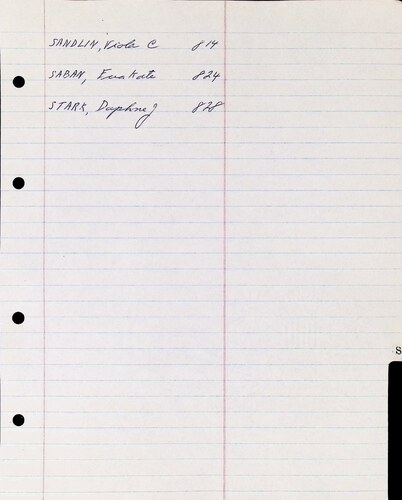 SANDLIN, Viola C 814
SABAN, Eva Kate 824
STARK, Daphne J 828
S